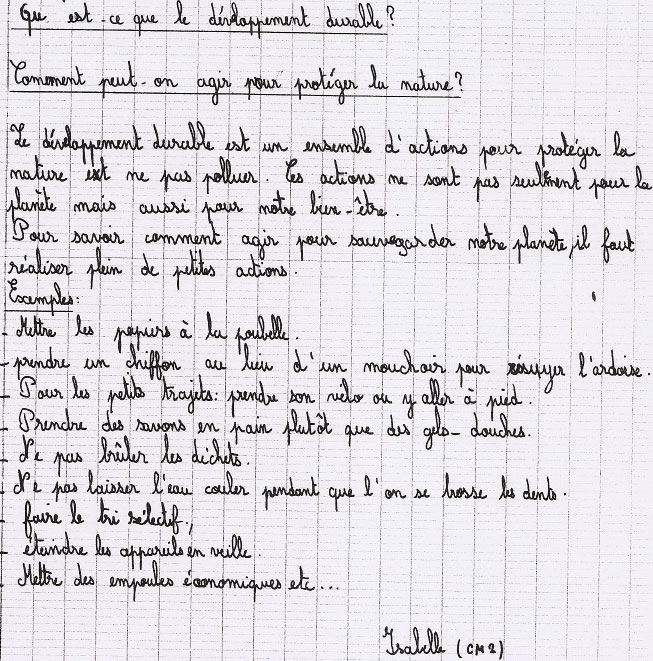 Qu'est-ce que le développement durable ?
Comment peut-on agir pour protéger la nature ?
Le développement durable est un ensemble d'actions pour protéger la
nature et ne pas polluer. Ces actions ne sont pas seulement pour la
planète mais aussi pour notre bien-être.
Pour savoir comment agir pour sauvegarder notre planète, il faut
réaliser plein de petites actions.
Exemples :
- Mettre les papiers à la poubelle.
- prendre un chiffon au lieu d'un mouchoir pour essuyer l'ardoise.
- Pour les petits trajets : prendre son vélo ou y aller à pied.
- Prendre des savons en pain plutôt que des gels-douches.
- Ne pas brûler les déchets.
- Ne pas laisser l'eau couler pendant que l'on se brosse les dents.
- faire le tri sélectif,
- éteindre les appareils en veille.
- Mettre des empoules économiques etc...
Isabelle (CM2)